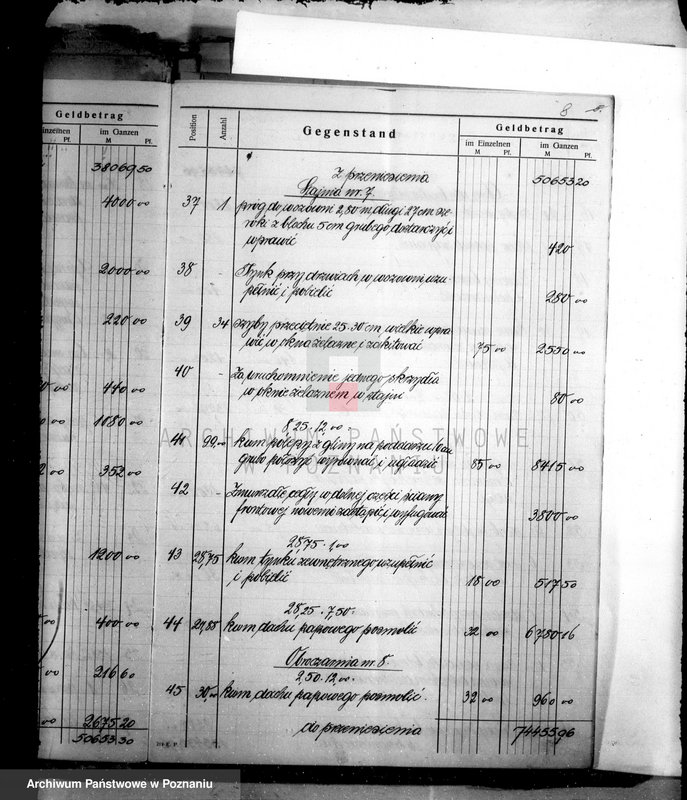 8
Geldbetrag
einzelnen im Ganzen
Pf. M Pf.
38069 50
4000 00
2000 00
220 00
00 440 00
00 1080 00
00 352 00
1200 00
00 400 00
00 216 60
00 2675 20
50653 30
Position Anzahl Gegenstand Geldbetrag
im Einzelnen im Ganzen
M Pf. M Pf.
Z przeniesienia 50653 20
Stajnia nr. 7.
37 1 próg do wozowni 2,80 m długi 27 cm sze-
roki z blochu 5 cm grubego dostarczyć i
wprawić 420
38 - Tynk przy drzwiach w wozowni uzu-
pełnić i pobielić 280 00
39 34 szyby przeciętnie 25.30 cm wielkie wpra-
wić w okna żelazne i zakitować 75 00 2550 00
40 - Za uruchomnienie jednego skrzydła
w oknie żelaznem w stajni 80 00
8 25.12,00
41 99,00 kwm polepy z gliny na poddaszu
grubo położyć wyrównać i ugładzić 85 00 8415 00
42 - Zmurszałe cegły w dolnej części ściany
frontowej nowemi zastąpić i wyfugować 3800 00
28,75.1,00
43 28,75 kwm tynku zewnętrznego uzupełnić
i pobielić 18 00 517 50
28,25.7,50.
44 kwm dachu papowego posmolić 32 00 6780 16
Obroczarnia nr. 8.
2,50.12,00.
45 30,00 kwm dachu papowego posmolić. 32 00 960 00
do przeniesienia 74455,96
ARCHIWUM PAŃSTWOWE
W POZNANIU
Archiwum Państwowe w Poznaniu